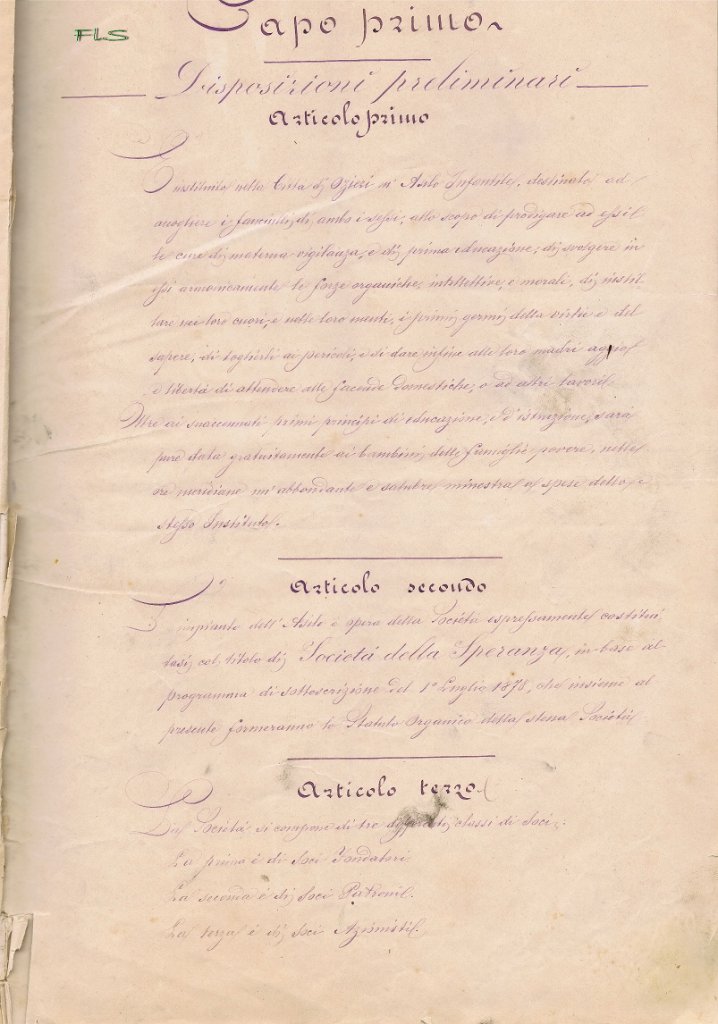 FLS
Capo primo
Disposizioni preliminari
Articolo primo
È instituito nella Città di Ozieri un' Asilo Infantile, destinato ad
accogliere i fanciulli di ambo i sessi; allo scopo di prodigare ad essi
le cure di materna vigilanza, e di prima educazione; di svolgere in
essi armonicamente le forze organiche, intellettive, e morali, di instil-
lare nei loro cuori, e nelle loro menti, i primi germi della virtù e del
sapere, di toglierli ai pericoli, e di dare infine alle loro madri aggio
e libertà di attendere alle faccende domestiche, o ad altri lavori.
Oltre ai suaccennati primi principi di educazione, e d'istruzione, sarà
pure data gratuitamente ai bambini delle famiglie povere, nelle
ore meridiane un' abbondante e salubre minestra a spese dello
stesso Instituto.
Articolo secondo
L' impianto dell' Asilo è opera della Società espressamente costitui-
tasi col titolo di Società della Speranza, in base al
programma di sottoscrizione del 1° Luglio 1878, che insieme al
presente formeranno lo Statuto Organico della stessa Società
Articolo terzo
La Società si compone di tre differenti classi di Soci:
La prima è di Soci Fondatori
La seconda è di Soci Patroni.
La terza è di Soci Azionisti.